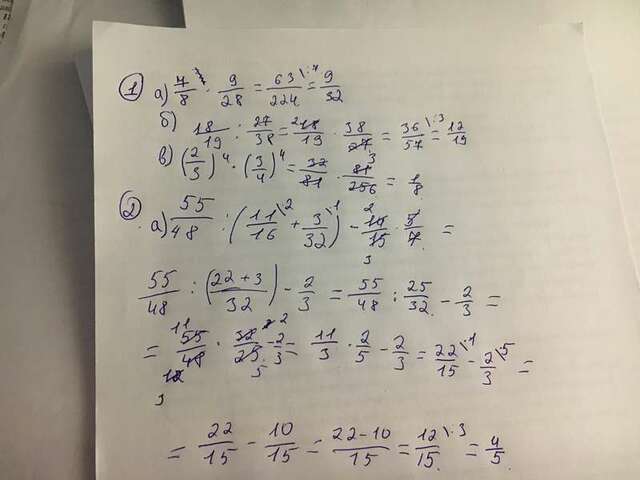 ① а) 7/8 · 9/28 = 63/224 \:7 = 9/32
б) 18/19 : 27/38 = 18/19 · 38/27 = 36/57 \:3 = 12/19
в) (2/3)⁴ · (3/4)⁴ = 32/81 · 81/256 = 1/8
② а) 55/48 : (11/16 \2 + 3/32 \1) - 10/15 · 5/7 =
55/48 : (22+3/32) - 2/3 = 55/48 : 25/32 - 2/3 =
= 55/48 · 32/25 - 2/3 = 11/3 · 2/5 - 2/3 = 22/15 \1 - 2/3 \5 =
= 22/15 - 10/15 = 22-10/15 = 12/15 \:3 = 4/5